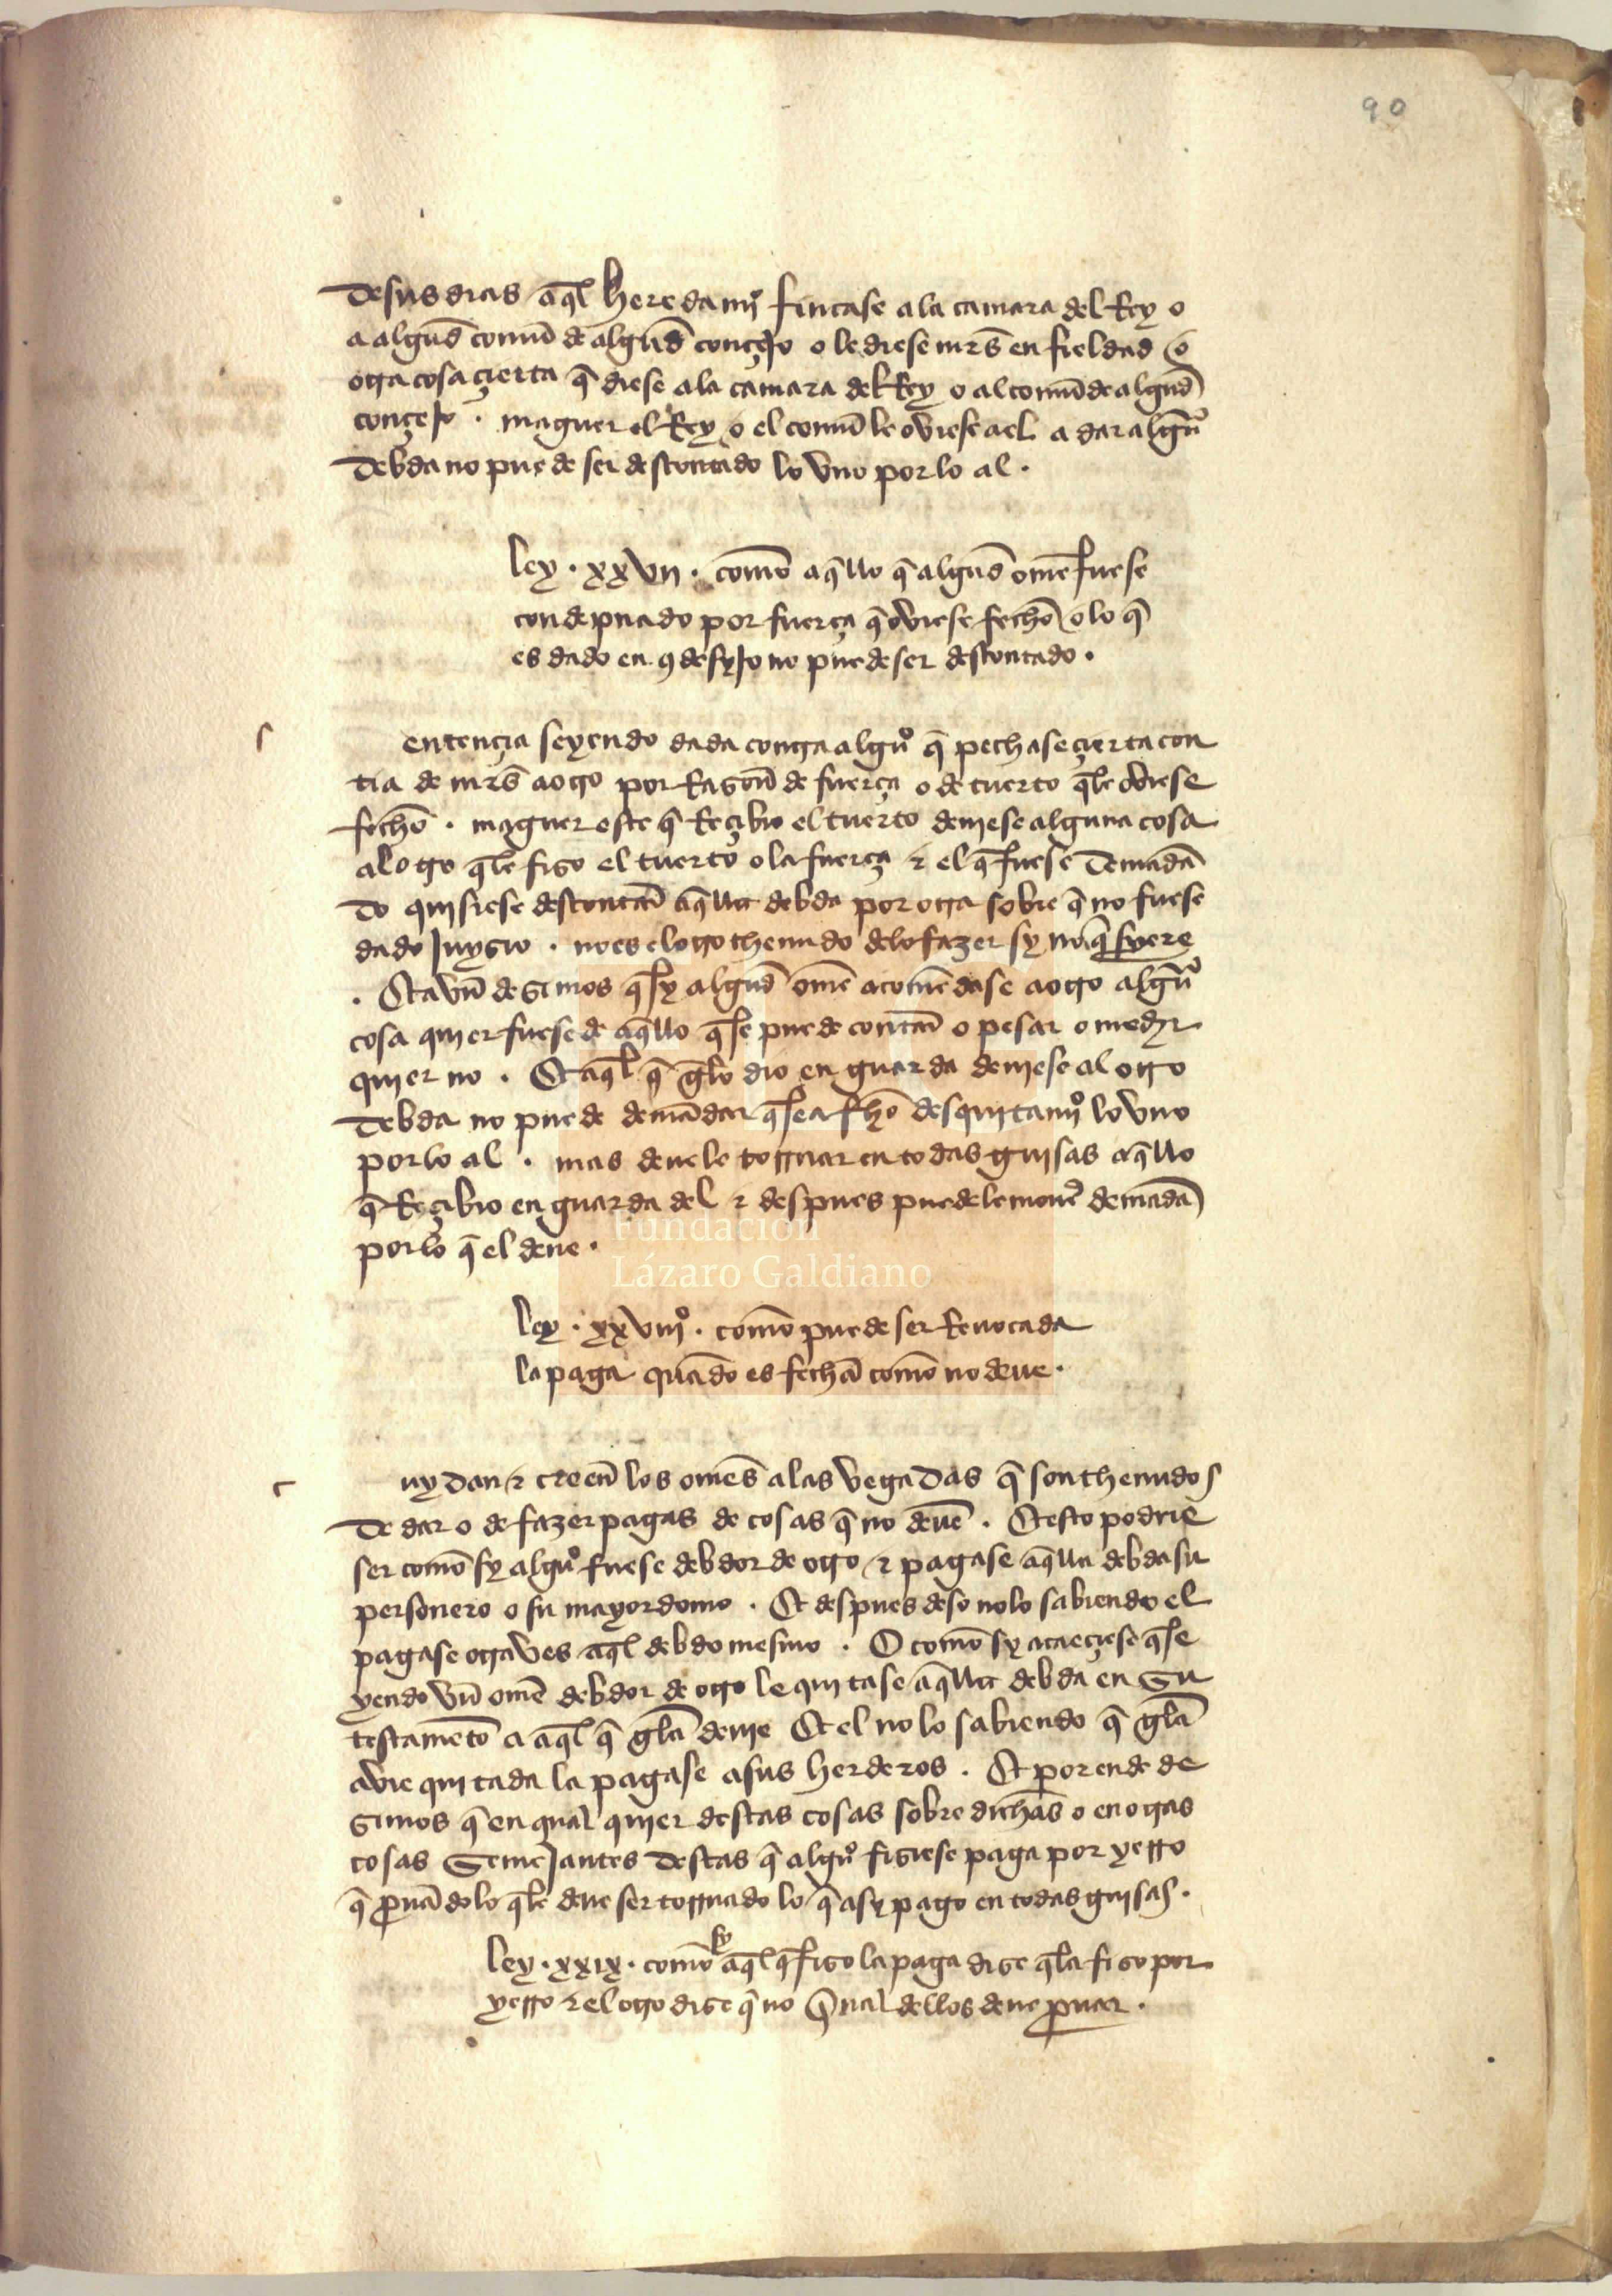 90
de sus dias aq̃l heredamjº fincase ala camara del Rey o
a algund comũ de algund conçejo o le diese mrs̃ en fieldad o
otra cosa çierta q̃ diese ala camara del Rey o al comũ de algund
conçejo . maguer el Rey o el comũ le oviese ael a dar algũª
debda no puede ser descontado lo vno por lo al .
ley . xxvij . comõ aq̃llo q̃ algund omẽ fuese
condepnado por fuerça q̃ oviese fechõ o lo q̃
es dado en 9desyjo no puede ser descontado .
s
entençia seyendo dada contra algũº q̃ pechase çierta con
tia de mrs̃ aotro por Rasoñ de fuerça o de tuerto q̃le oviese
fechõ . maguer este q̃ Reçibio el tuerto deviese alguna cosa
al otro q̃le fiso el tuerto o la fuerça τ el q̃ fuese demãdã
do quisiese descontar̃ aq̃lla debda por otra sobre q̃ no fuese
dado juysio . no es el otro thenudo delo fazer sy no q̃ syere
. Et avñ desimos q̃ sy algund omẽ acomẽdase aotro algũª
cosa quier fuese de aq̃llo q̃ se puede contar̃ o pesar o medjr
quier no . Et aq̃l q̃ gelo dio en guarda deviese al otro
debda no puede demãdar q̃ sea fhõ desquitamjº lo vno
por lo al . mas deuele tornar en todas guisas aq̃llo
q̃ Reçibio en guarda del τ despues puedele mouer̃ demãda
por lo q̃ el deue .
Fundación
Lázaro Galdiano
ley . xxviijº . comõ puede ser Reuocada
la paga quãdo es fechã comõ no deue .
c
uydan τ creen̄ los omẽs alas vegadas q̃ son thenudos
de dar o de fazer pagas de cosas q̃ no deuẽ . Et esto podrie
ser comõ sy algũº fuese debdor de otro τ pagase aq̃lla debda su
personero o su mayordomo . Et despues deso nolo sabiendo el
pagase otra ves aq̃l debdo mesmo . O comõ sy acaeçiese q̃ se
yendo vñ omẽ debdor de otro le quitase aq̃lla debda en su
testamẽto a aq̃l q̃ gela deuie Et el no lo sabiendo q̃ gela
avie quitada la pagase asus herderos . Et por ende de
simos q̃ en qual quier destas cosas sobre dichãs o en otras
cosas semejantes destas q̃ algũº fisiese paga por yerro
q̃ prouãdolo q̃le deue ser tornado lo q̃ asy pago en todas guisas .
ley . xxix . comõ sy aq̃l q̃ fiso la paga dise q̃la fiso por
yerro τ el otro dise q̃ no qual dellos deue prouar .